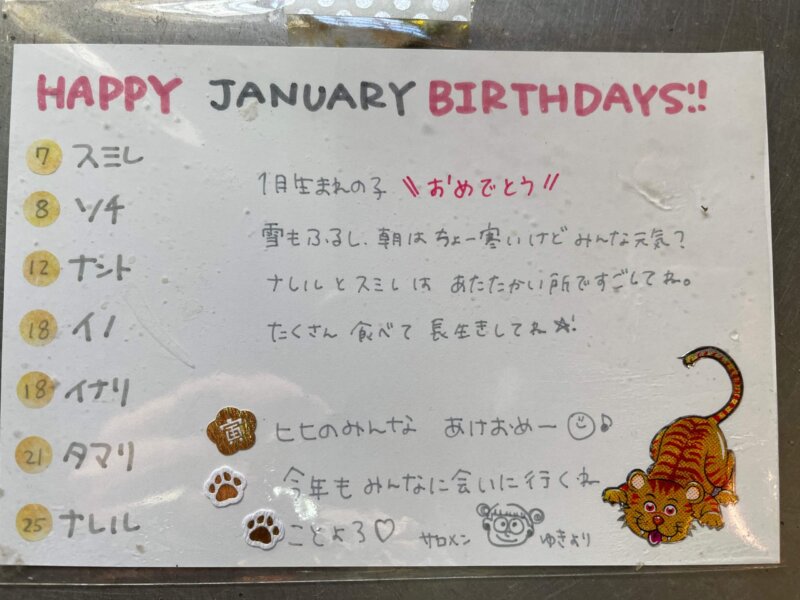 HAPPY JANUARY BIRTHDAYS!!
7 スミレ
8 ソチ
12 ナント
18 イノ
18 イナリ
21 タマリ
25 ナレルル
1月生まれの子 \\おめでとう//
雪もふるし、朝はちょー寒いけど みんな元気?
ナレルル とスミレは あたたかい所ですごしてね。
たくさん 食べて 長生きしてね☆!
寅 ヒヒのみんな あけおめー☺♪
今年も みんなに会いに行くね
ことよろ♡ サロメン ゆきより